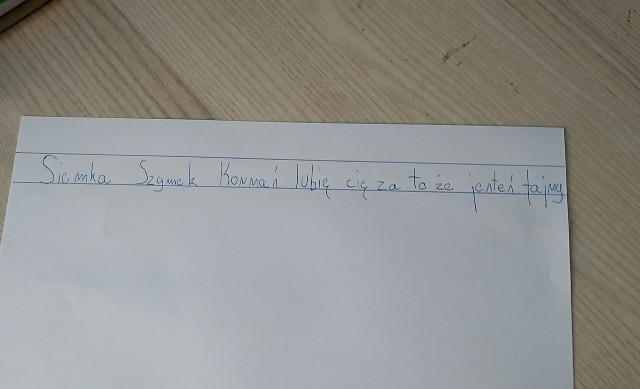 Siemka Szymek Konmań lubię cię za to że jenteń fajny